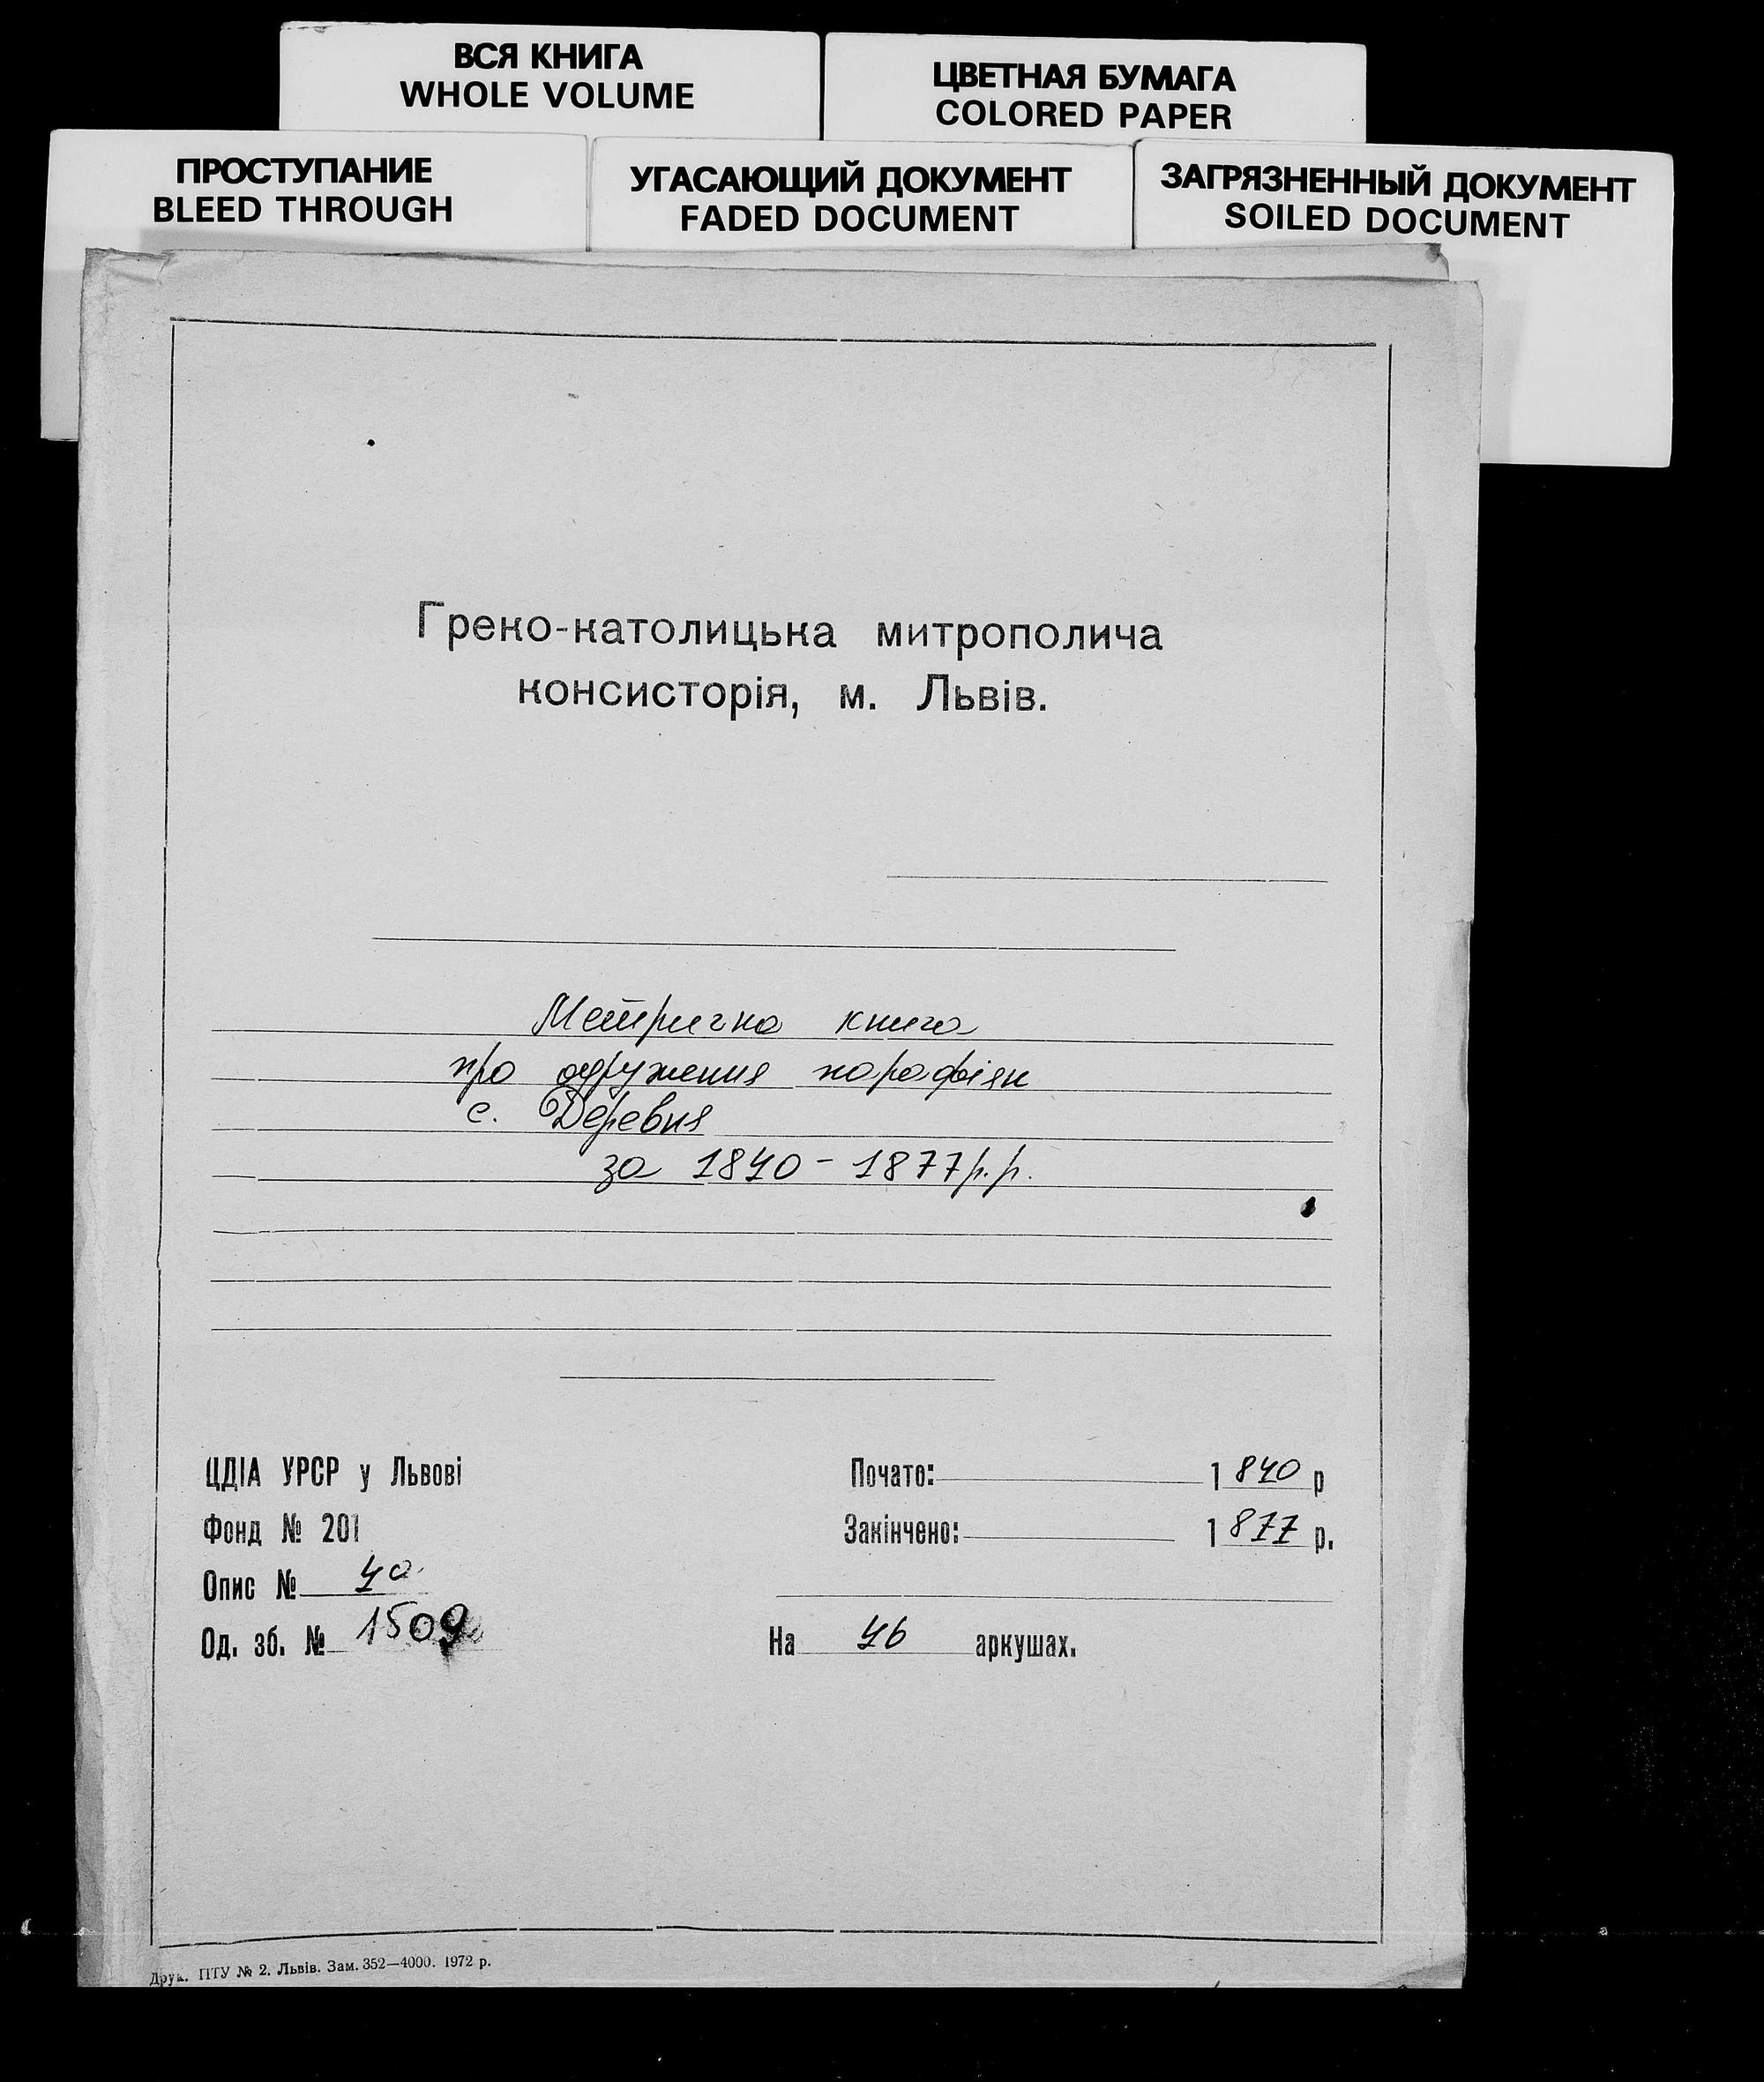 ВСЯ КНИГА
WHOLE VOLUME
ЦВЕТНАЯ БУМАГА
COLORED PAPER
ПРОСТУПАНИЕ
BLEED THROUGH
УГАСАЮЩИЙ ДОКУМЕНТ
FADED DOCUMENT
ЗАГРЯЗНЕННЫЙ ДОКУМЕНТ
SOILED DOCUMENT
Греко-католицька митрополича
консисторія, м. Львів.
Метрична книга
про одруження парафіян
с. Деревня
за 1840 - 1877 р.р.
ЦДІА УРСР у Львові
Фонд № 201
Опис № 4а
Од. зб. № 1509
Почато: 1840 р
Закінчено: 1877 р.
На 46 аркушах.
Друк. ПТУ № 2. Львів. Зам. 352—4000. 1972 р.